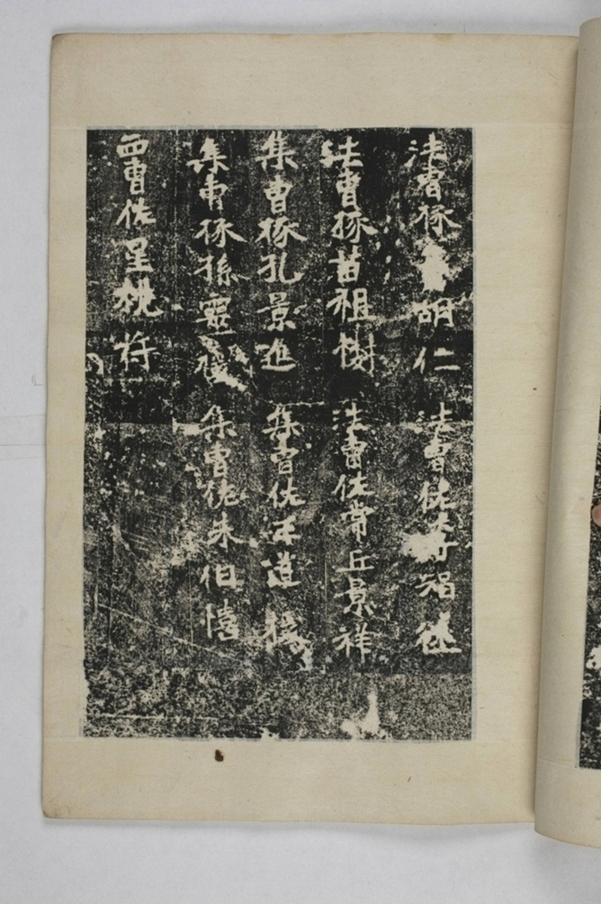 法曹掾 胡仁 法曹佐
法曹掾苗祖樹 法曹佐常丘景祥
集曹掾孔景進 集曹佐 道
集曹掾孫靈 集曹佐朱伯憘
曹佐星桃符